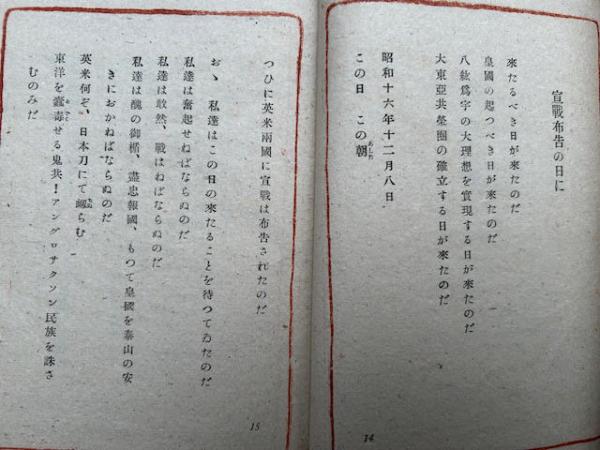 宣戰布告の日に
來たるべき日が來たのだ
皇國の起つべき日が來たのだ
八紘爲宇の大理想を實現する日が來たのだ
大東亞共榮圈の確立する日が來たのだ
昭和十六年十二月八日
この日 この朝
あした
14
つひに英米兩國に宣戰は布告されたのだ
おゝ 私達はこの日の來たることを待つてゐたのだ
私達は奮起せねばならぬのだ
私達は敢然、戰はねばならぬのだ
私達は醜の御楯、盡忠報國、もつて皇國を泰山の安
きにおかねばならぬのだ
英米何ぞ、日本刀にて らむ
東洋を蠹毒せる鬼共！アングロサクソン民族を誅さ
むのみだ
15